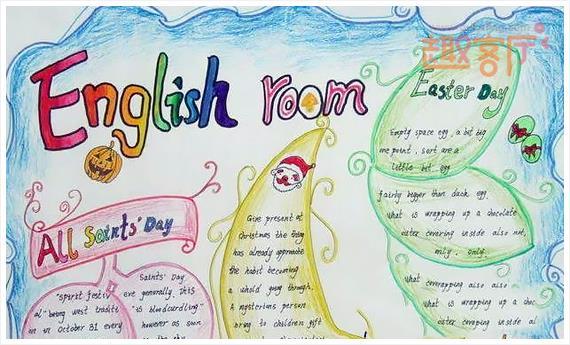 趣客厅
English room
Easter Day
Empty space egg, a bit big
me point, sort are a
little bit egg
fairly bigger than duck egg.
what is wrapping up a chocolate
outer covering inside also not,
only. only.
what coverapping also also
what is wrapping up a choc
outer coveping inside
All Saints' Day
"spirit festiv
al" being west traditi
on in October 31 every
Saints' Day
eve generally. this
is "bloodcurdling"
however as soon
the sky
Give present at
Christmas the thing
has already approache
the habit becoming
a whold going through.
A mysterious person
bring to children gift